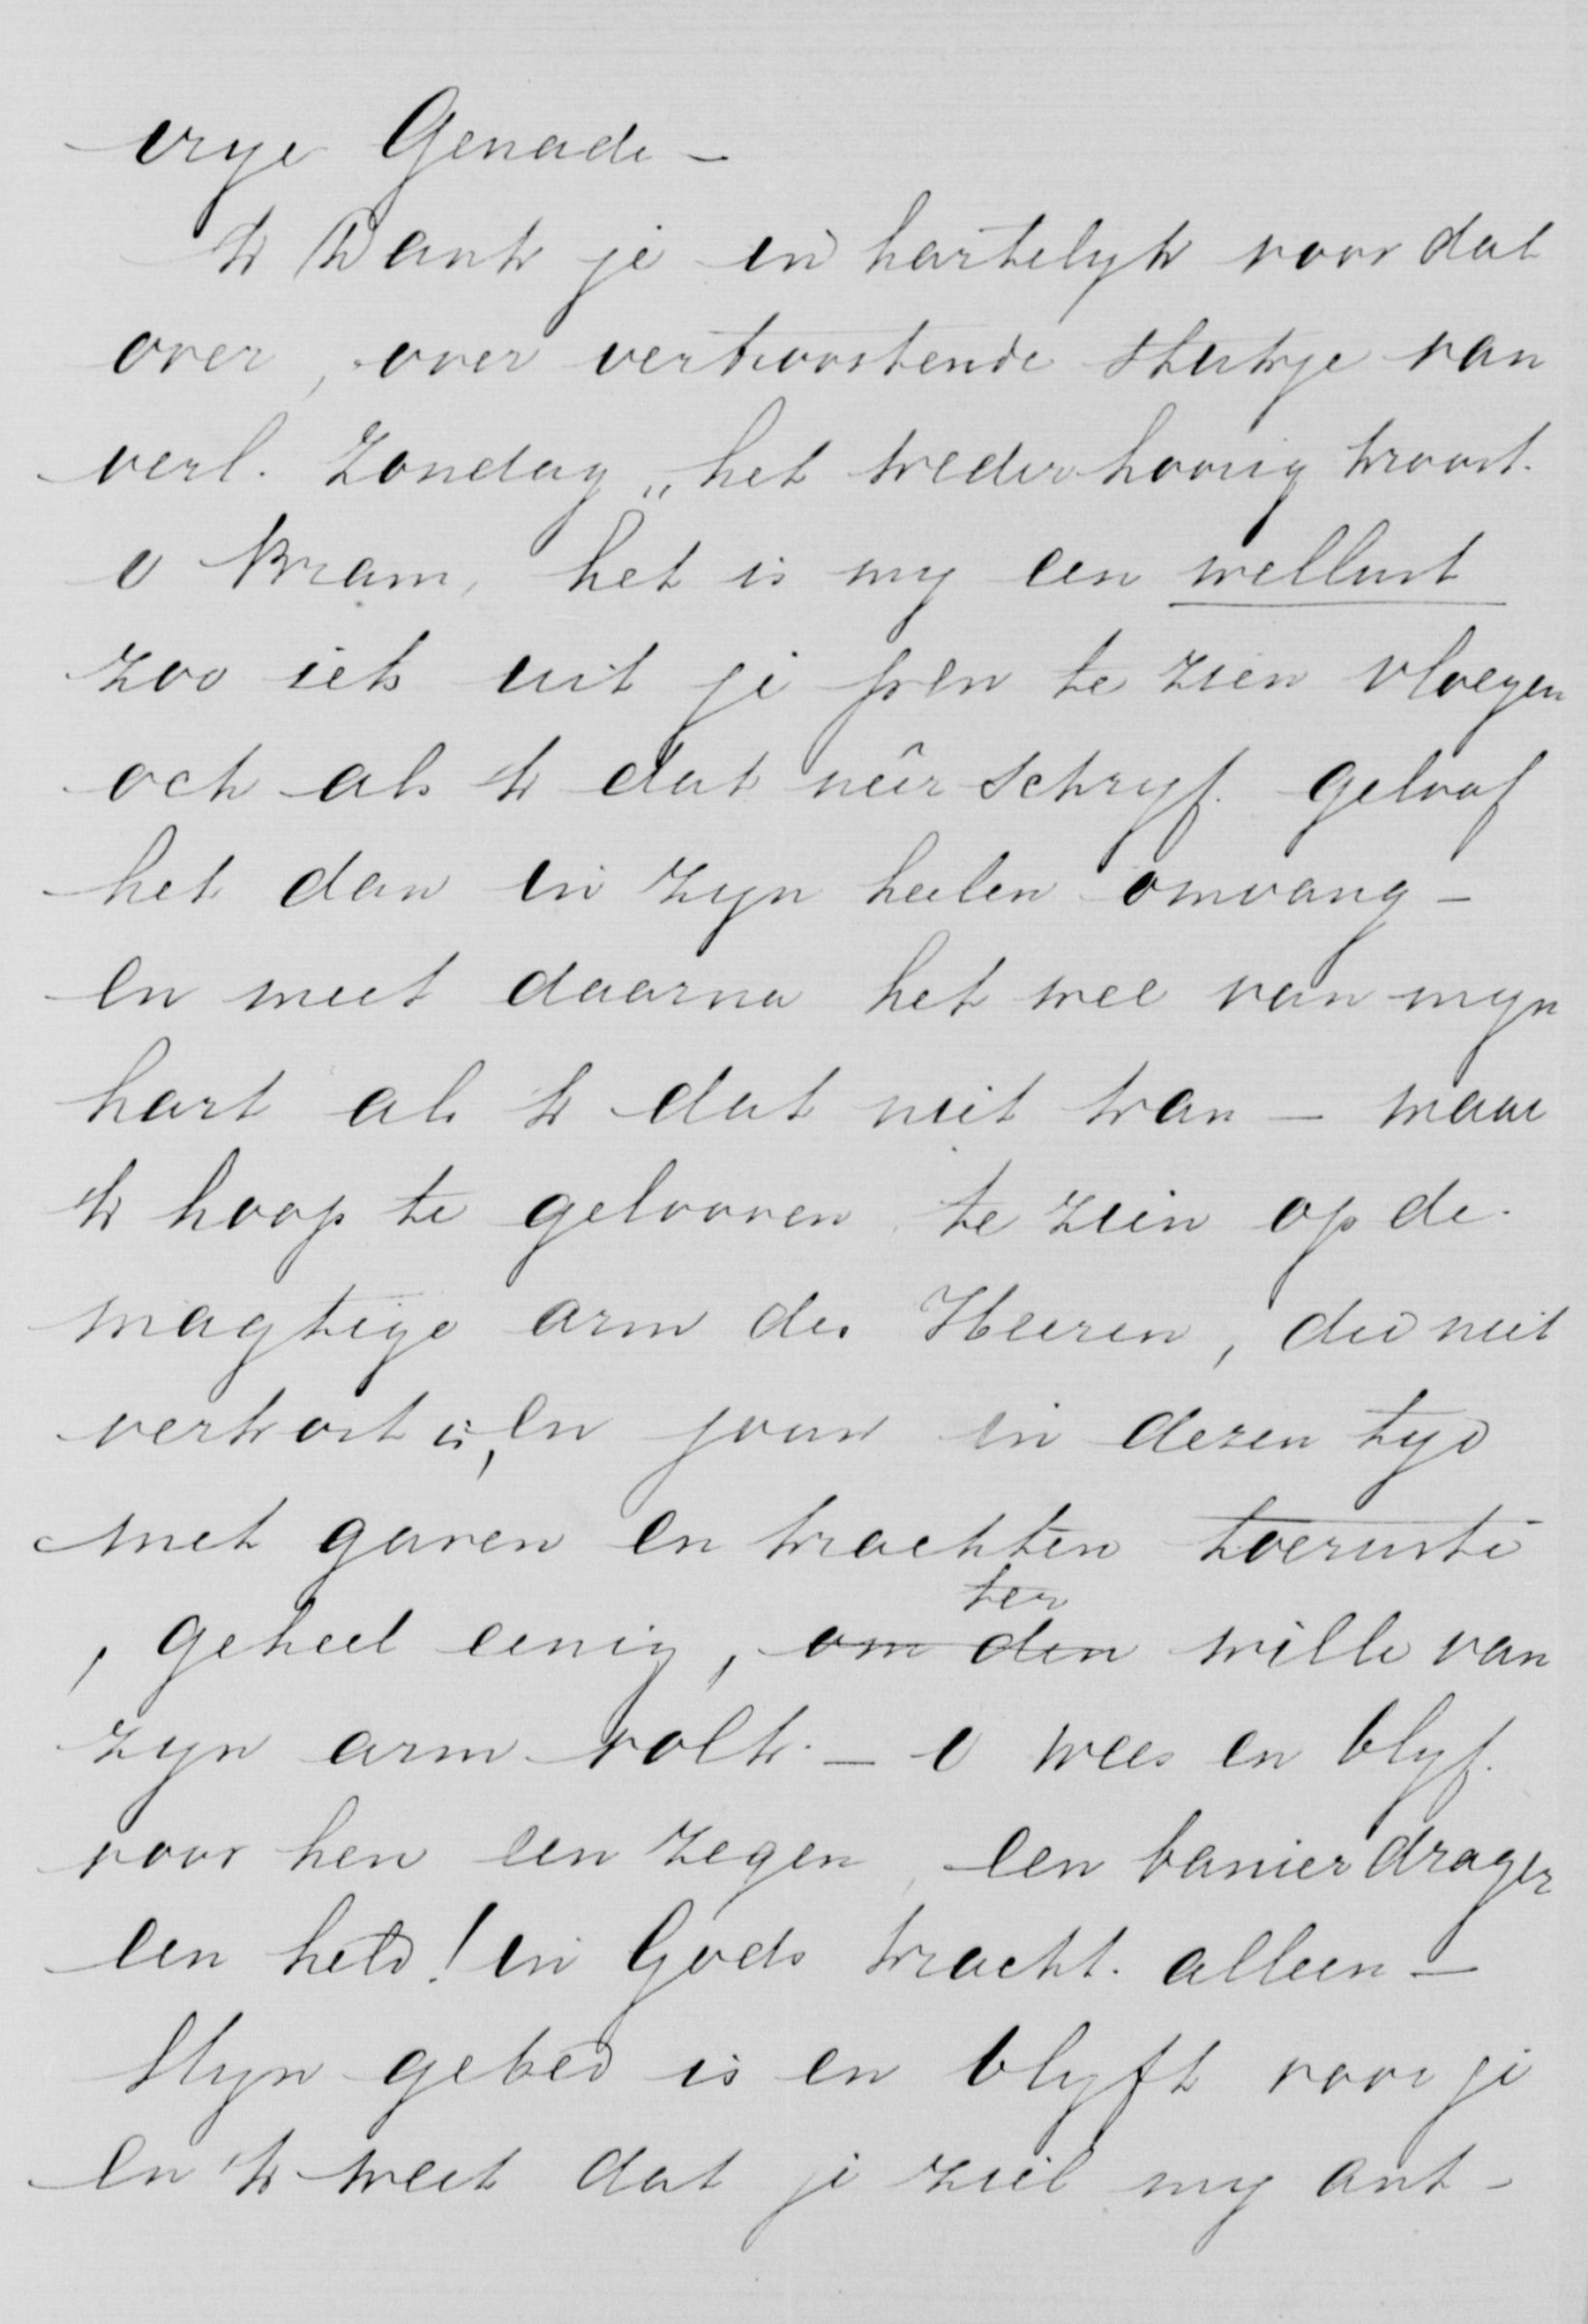 vrye Genade –
'k Dank je en hartelyk voor dat
over, over vertroostende stukje van
verl. Zondag „het wederhoorig kroost.
o Bram, het is my een wellust
zoo iets uit je pen te zien vloeyen
och als 'k dat neêrschryf. geloof
het dan in zyn heelen omvang –
en meet daarna het wee van myn
hart als 'k dat niet kan – maar
'k hoop te gelooven te zien op de
magtige arm des Heeren, die niet
verkort is, en jouw in dezen tyd
met gaven en krachten toeruste
, geheel eenig, om den ter wille van
zyn arm volk. – o wees en blyf.
voor hen een zegen, een banierdrager
een held! in Gods kracht. alleen –
Myn gebed is en blyft voor je
en 'k weet dat je ziel my ant-